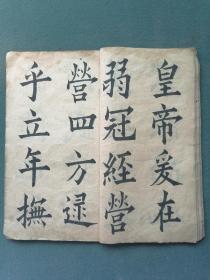 皇帝爰在
弱冠經營
營四方逮
乎立年撫